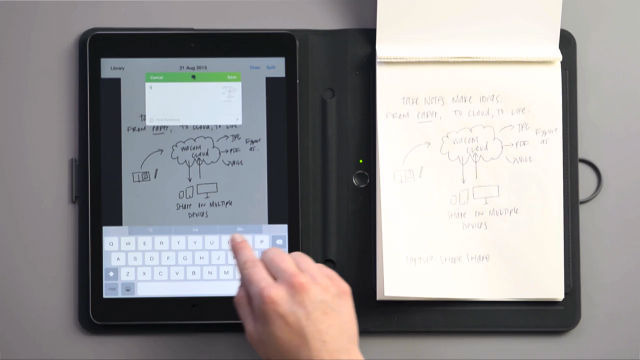 Library
21 Aug 2015
Split
Cancel
Save
FROM PAPER, TO CLOUD, TO LIFE.
WACOM CLOUD
JPG
PDF
WILL
SHARE ON MULTIPLE
DEVICES
Q W E R T Y U P
A S D F G H J
Z X C V B N M
TAKE NOTES MAKE IDEAS.
FROM PAPER, TO CLOUD, TO LIFE.
WACOM
CLOUD
JPG
PDF
WILL
SHARE ON MULTIPLE
DEVICES